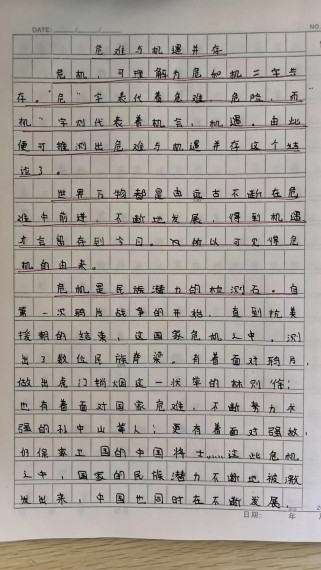 DATE: / /
NO.
危难与机遇并存
危机，可理解为危和机二字与
存。“危”字代表着危难，危险，而“
机”字则代表着机会，机遇。由此
便可推测出危难与机遇并存这个结
论了。
世界万物都是由远古不断在危
难中前进，不断地发展，得到机遇
才会留存到今日。为所以可见得危
机的由来。
危机是民族潜力的检测石。自
第一次鸦片战争的开始，直到抗美
援朝的结束，这国家危机之中，测
出了数位民族脊梁。有着面对鸦片，
做出虎门销烟这一伏举的林则徐；
也有着面对国家危难，不断努力关
强的孙中山等人；更有着面对强敌，
仍保家卫国的中国将士……这些危机
之中，国家的民族潜力不断地被激
发出来，中国也同时在不断发展，
日期： 年